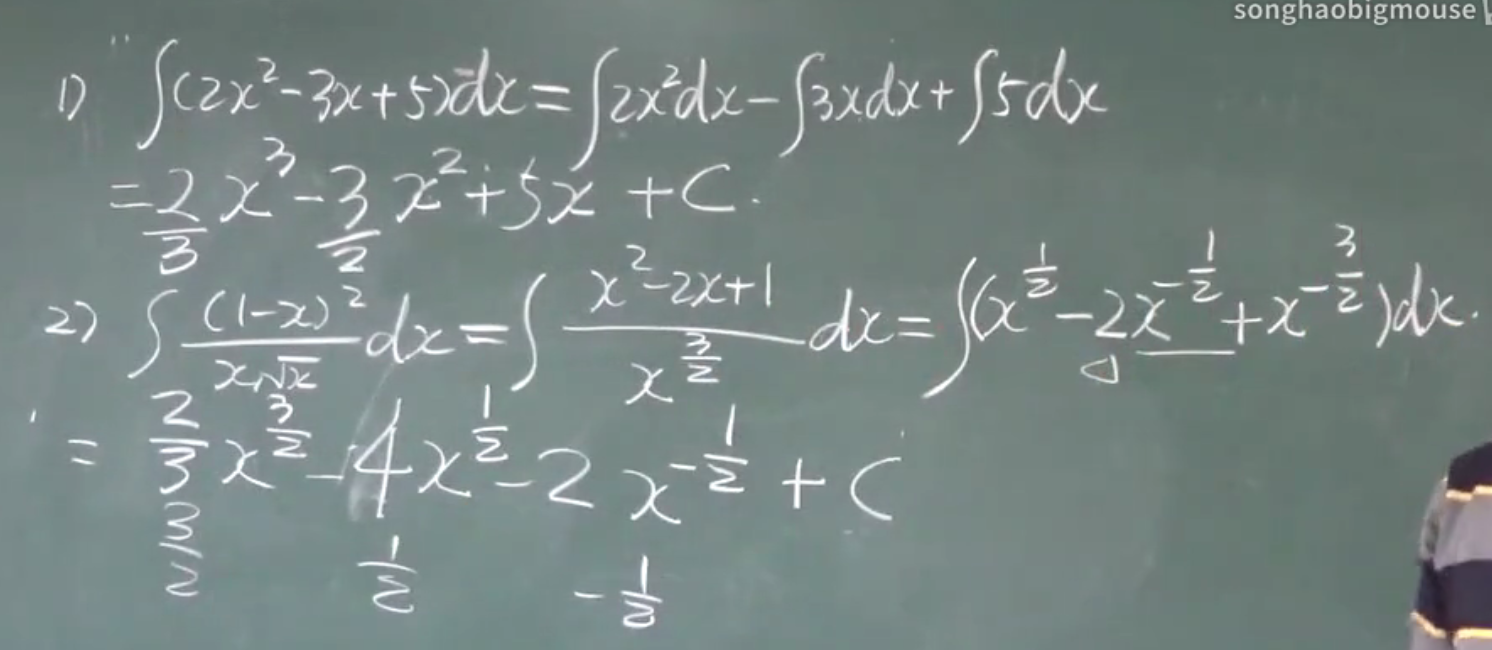 songhaobigmouse
1) ∫(2x²-3x+5)dx=∫2x²dx-∫3xdx+∫5dx
=2/3 x³-3/2 x²+5x+C.
2) ∫(1-x)²/(x√x) dx=∫(x²-2x+1)/x^(3/2) dx=∫(x^(1/2)-2x^(-1/2)+x^(-3/2))dx.
=2/3 x^(3/2)-4x^(1/2)-2x^(-1/2)+C
3/2 1/2 -1/2